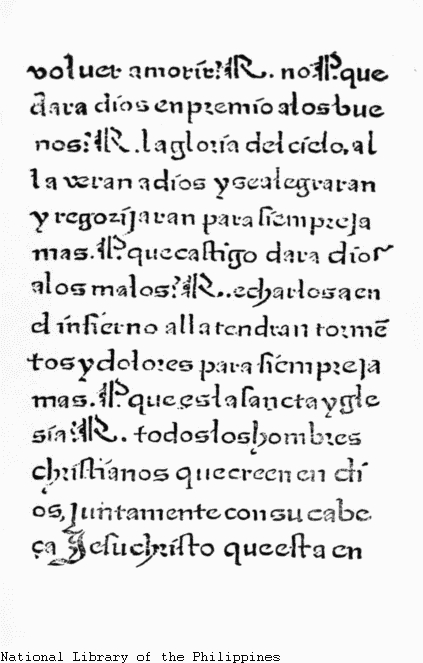 voluer a morir? R. no. P. que
dara dios en premio a los bue
nos? R. la gloria del cielo, al
la veran a dios y se alegraran
y regozijaran para siempre ja
mas. P. que castigo dara dios
a los malos? R. echarlos a en
el infierno alla tendran tormẽ
tos y dolores para siempre ja
mas. P. que es la sancta ygle
sia? R. todos los hombres
christianos que creen en di
os, juntamente con su cabe
ça Jesu christo que esta en
National Library of the Philippines